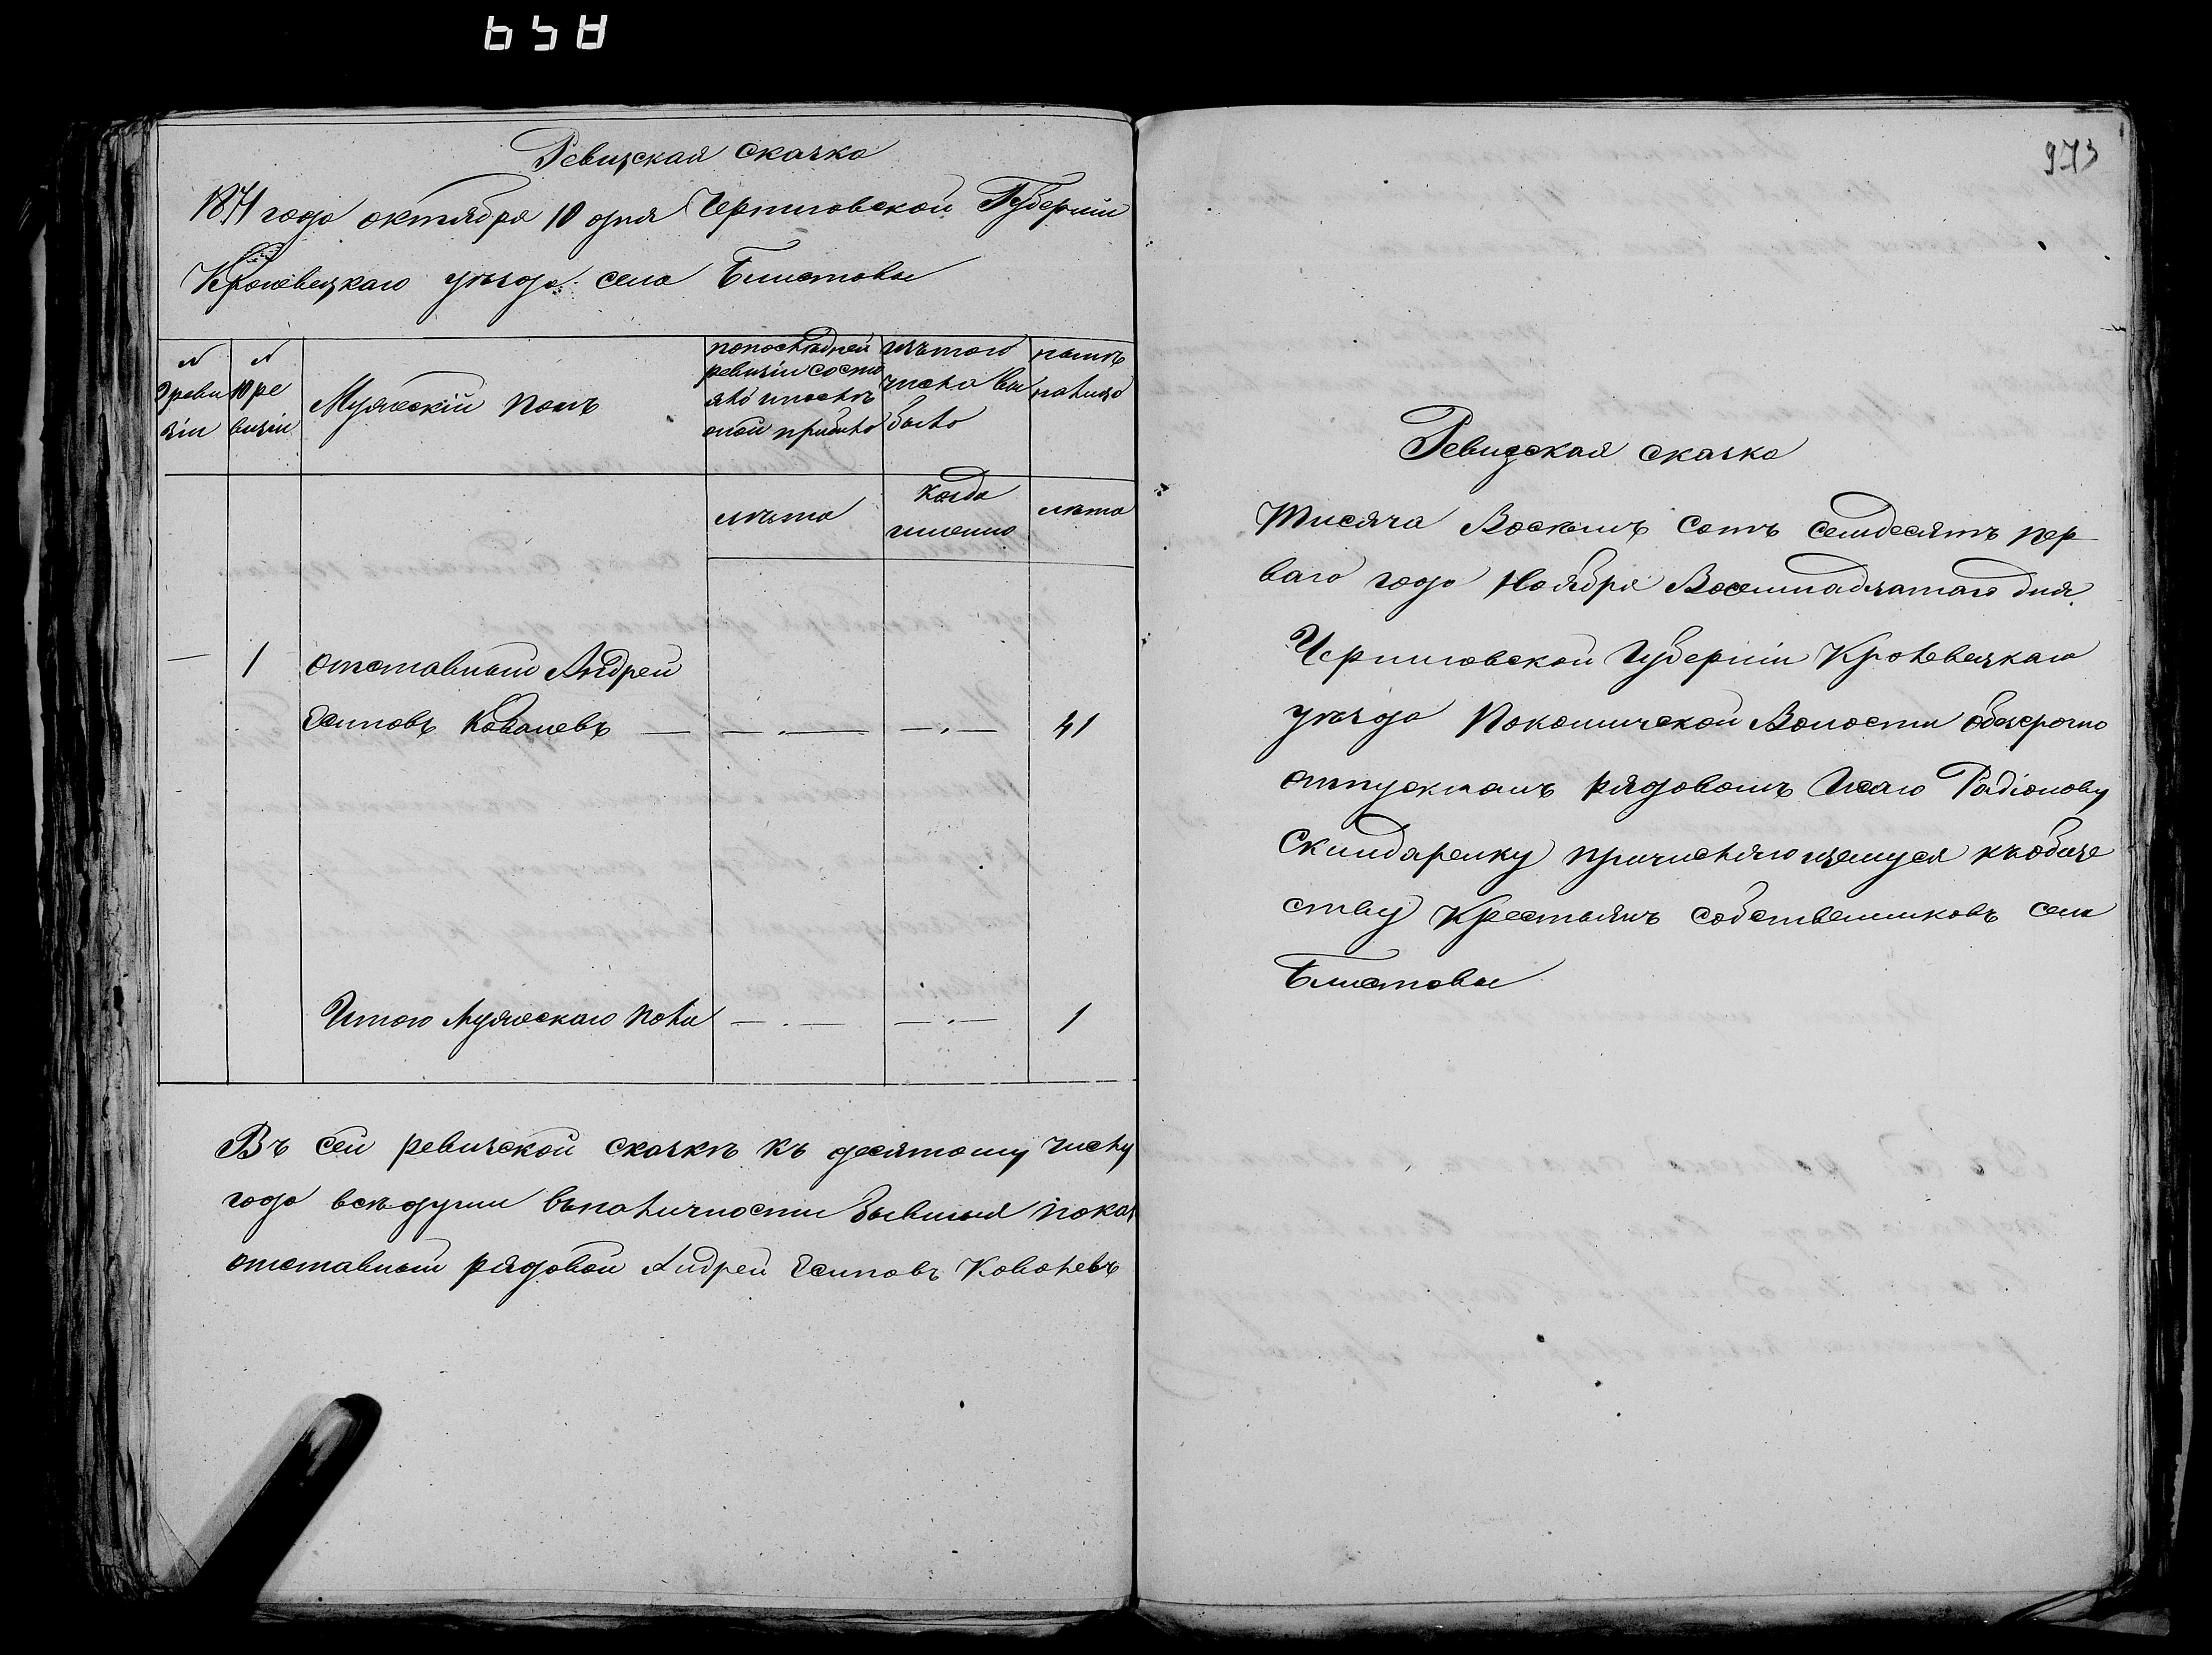 Ревизская сказка
1871 года октября 10 дня Черниговской Губерніи
Кролевецкаго уѣзда села Блистовы
№ 9 реви зіи
№ 10 ре визіи
Мужескій полъ
по последней ревизіи состо яло и послѣ оной прибыло
изъ того числа вы было
нынѣ на лицо
лѣта
когда именно
лѣта
— 1 отставный Андрей
Осиповъ Ковалевъ — — . — — . — 41
Итого мужескаго пола — . — — . — 1
Въ сей ревизской сказкѣ къ десятому числу
года всѣ души въ наличности бывшыя показ
отставный рядовой Андрей Осиповъ Ковалевъ
973
Ревизская сказка
Тисяча Восемъ сотъ семдесятъ пер
ваго года Ноября Восемнадцатаго дня
Черниговской Губерніи Кролевецкаго
уѣзда Покошичской Волости о безсрочно
отпускномъ рядовомъ Исаю Радіонову
Скиндаренку причисляющемуся къ обще
ству крестьянъ собственниковъ села
Блистовы
859